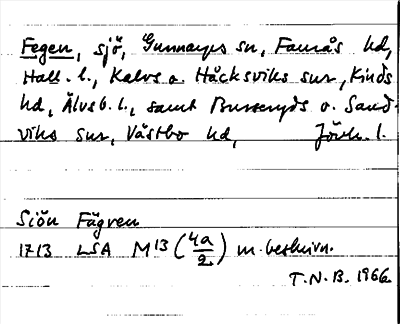 Fegen, sjö, Gunnarps sn, Faurås hd,
Hall. l., Kalvs o. Håcksviks snr, Kinds
hd, Älvsb. l., samt Burseryds o. Sand-
viks snr, Västbo hd, Jönk. l.
Siön Fägren
1713 LSA M 13 (4a/2) m. beskrivn.
T.N.B. 1966